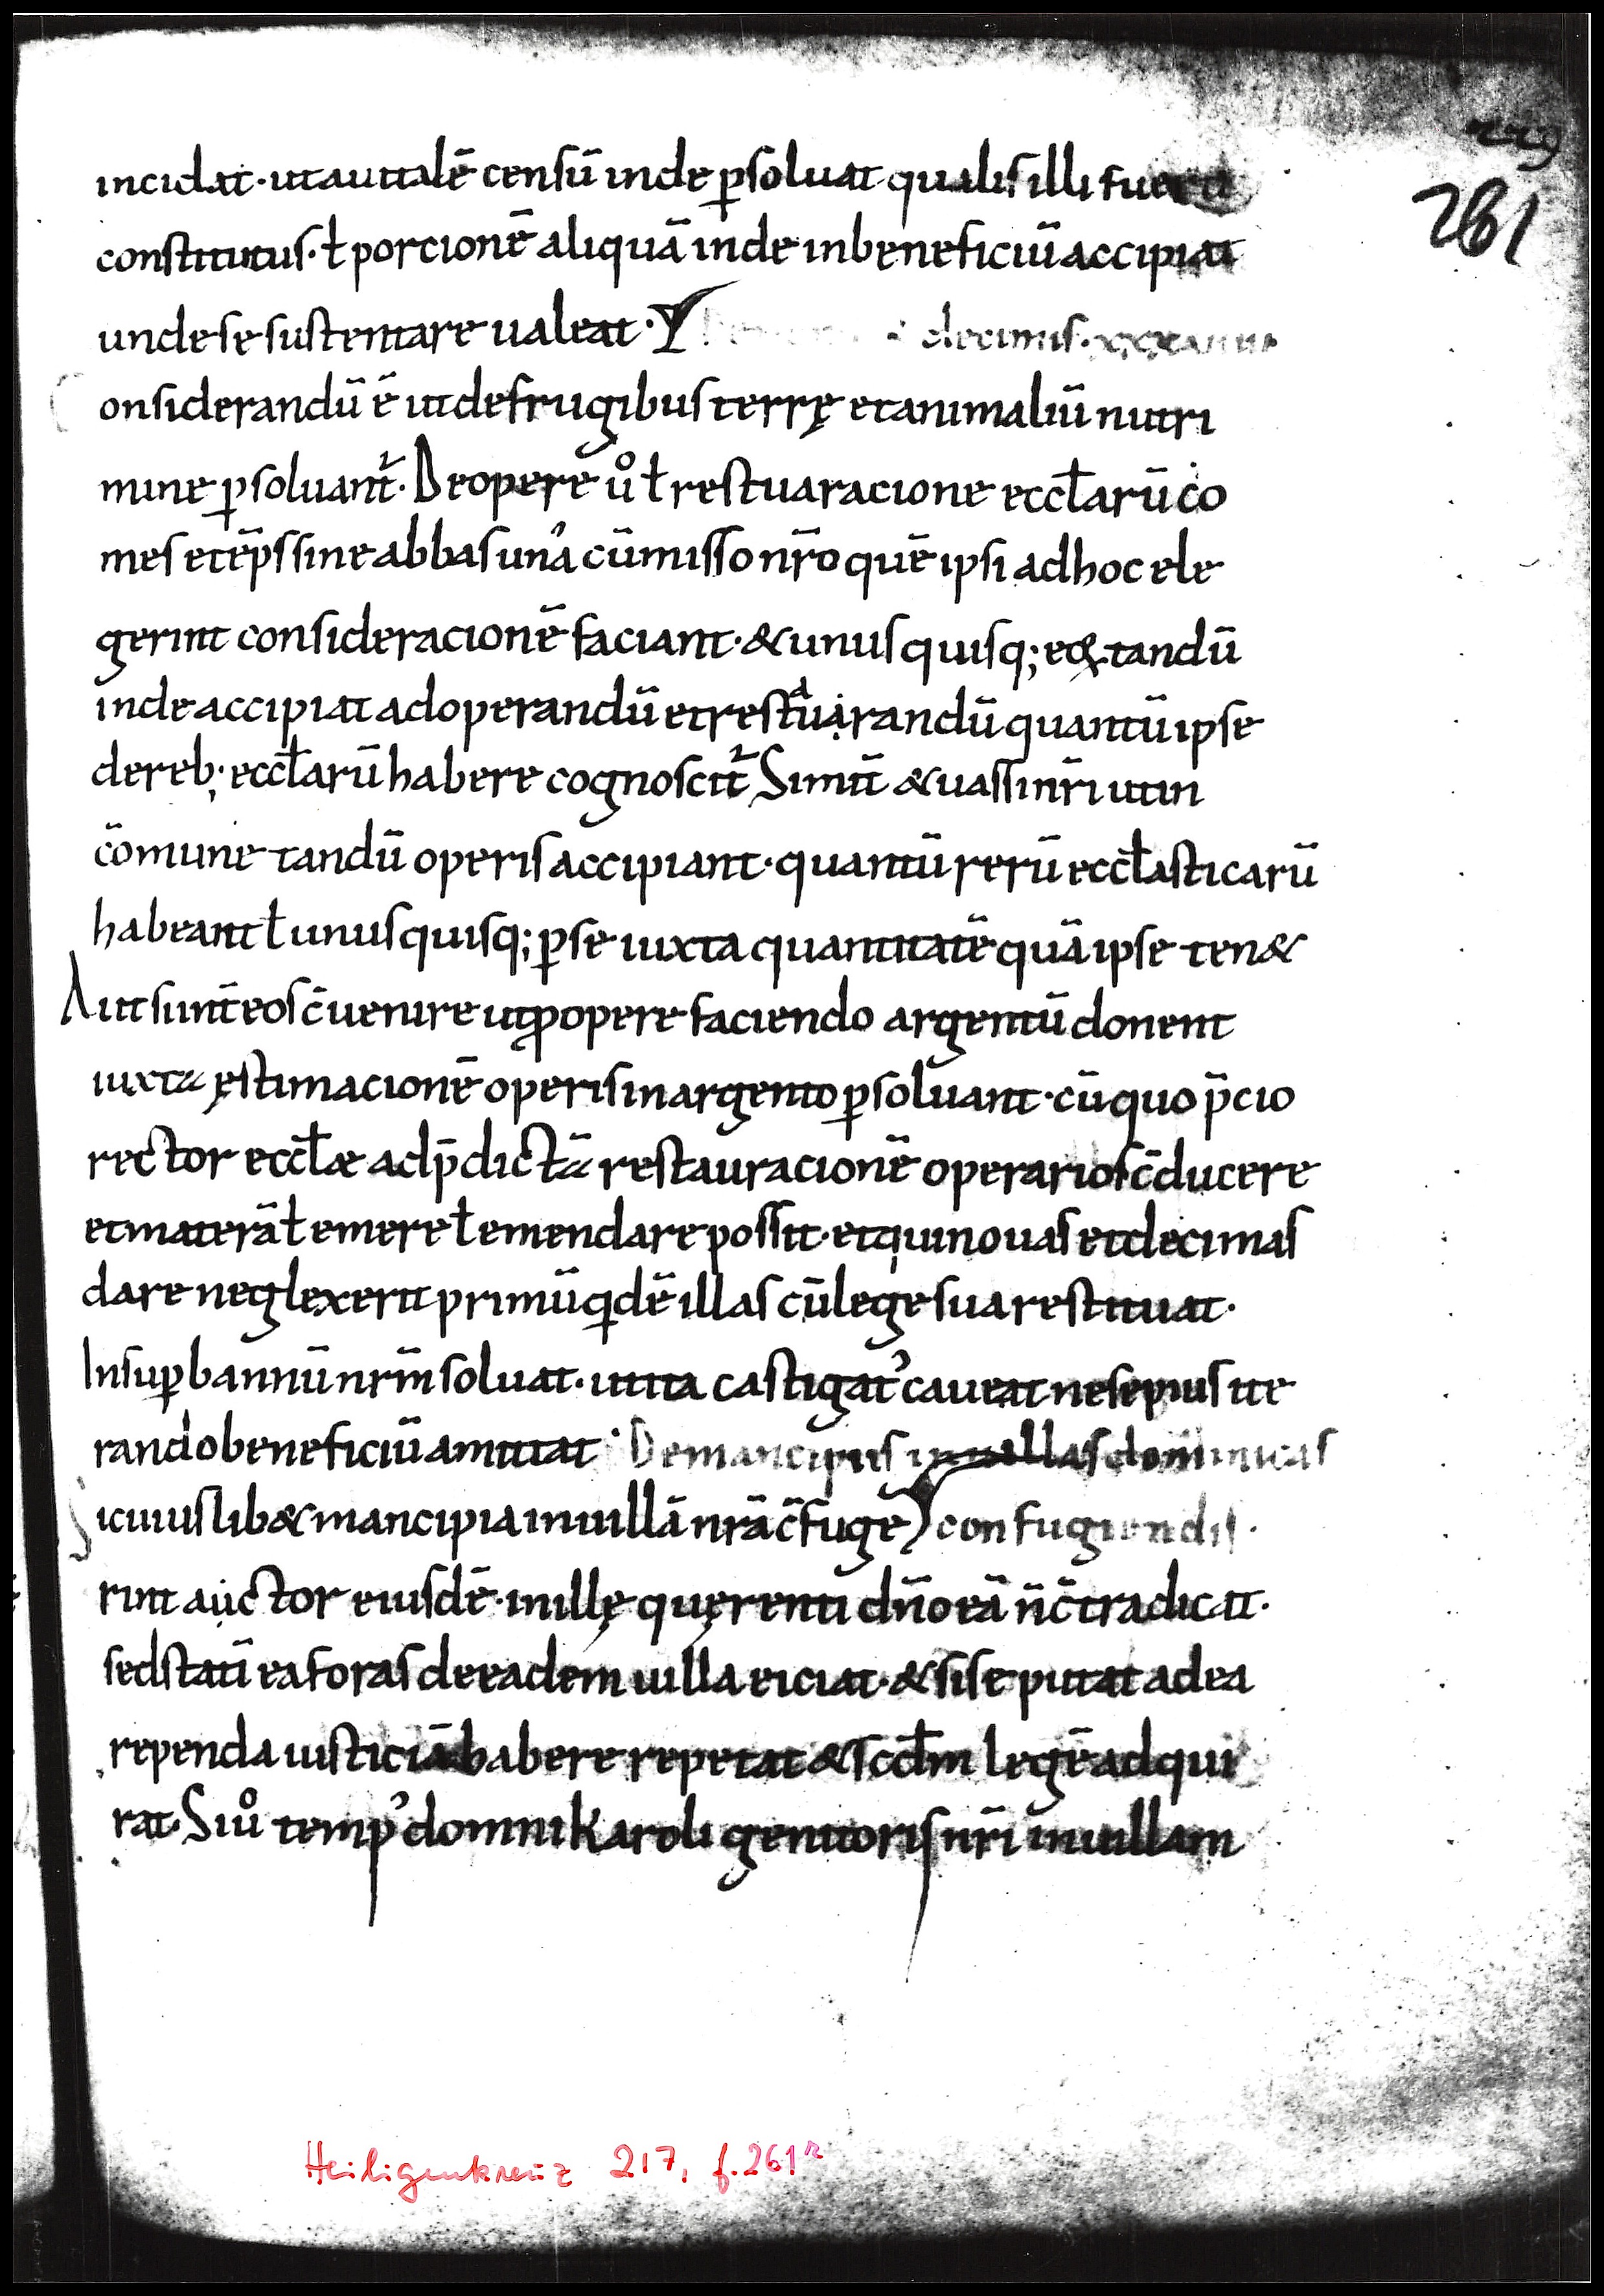 281
incidat · utauttalē censū inde ꝑsoluat qualis illi fuerit
constitutus · ł porcionē aliquā inde inbeneficiū accipiat
undese sustentare ualeat · decimis · 
onsiderandū ē utdefrugibus terrę etanimaliū nutri
mine ꝑsoluant᷑ · Deopere uͦ ł restuaracione eccłarū co
mes etep̄s siue abbas unâ cūmisso nr̄o quē ipsi adhoc ele
gerint consideracionē faciant · &unusquisq; eo⁊ tandū
inde accipiat adoperandū etrestaurandū quantū ipse
dereb; eccłarū habere cognoscit᷑ Simił &uassi nr̄i utin
cōmune tandū operis accipiant · quantū rerū eccłasticarū
habeant ł unusquisq; ꝑse iuxta quantitatē quā ipse ten&
Aut sunt̄ eos c̄uenire utꝓopere faciendo argentū donent
iuxta ęstimacionē operis inargento ꝑsoluant · cū quo p̄cio
rector eccłæ adp̄dictā restauracionē operarios c̄ducere
etmaterā ł emere ł emendare possit · etquinouas etdecimas
dare neglexerit primū qidē illas cū lege sua restituat ·
Insuꝑ bannū nr̄m soluat · utita castigat᾿ caueat nesepius ite
randobeneficiū amittat · Demancipiis inuillas dominicas
Sicuiuslib& mancipia inuillā nr̄ā c̄fuge confugiendis ·
rint auctor eiusdē · uillę quęrenti dn̄o eā n̄ c̄tradicat ·
sedstatī eaforas deeadem uilla eiciat · &sise putat adea
rependa iusticiā habere repetat &scdm̄ legē adqui
rat · Siuͦ temp᾿ domni Karoli genitoris nr̄i inuillam
Heiligenkreuz 217, f. 261ʳ